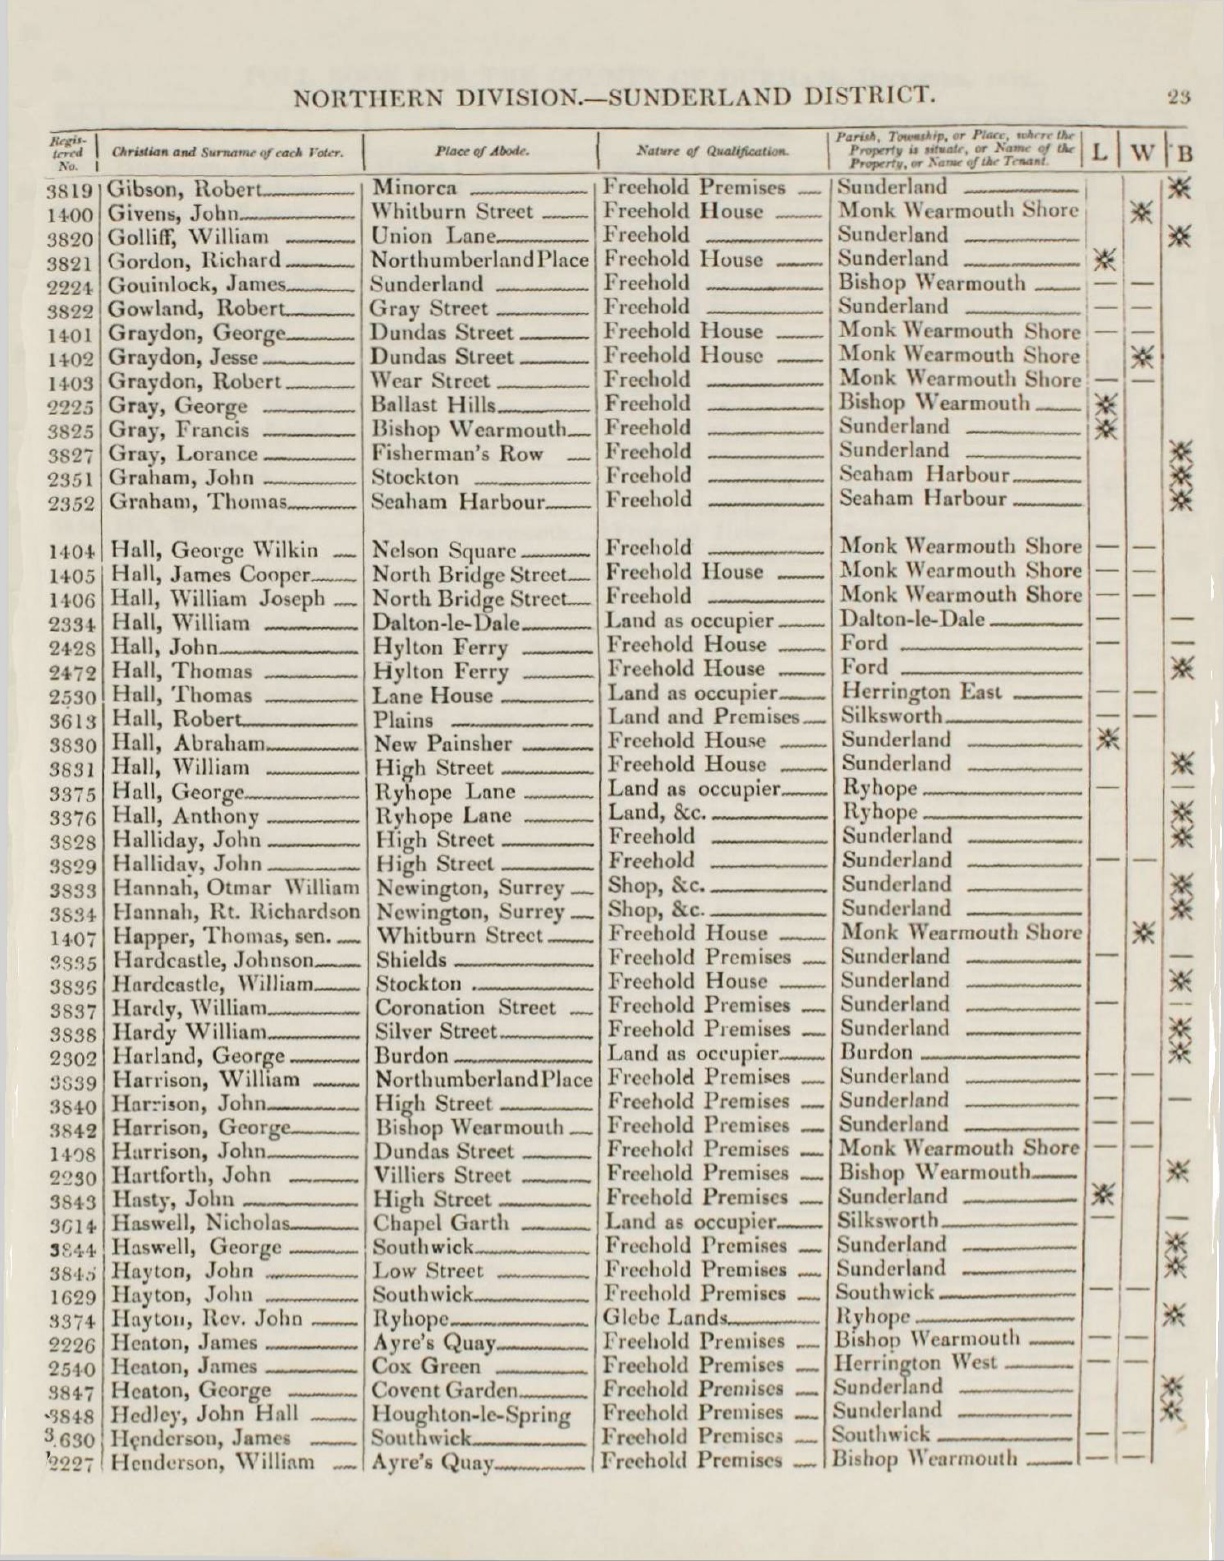 NORTHERN DIVISION.—SUNDERLAND DISTRICT. 23
Registered No. | Christian and Surname of each Voter. | Place of Abode. | Nature of Qualification. | Parish, Township, or Place, where the Property is situate, or Name of the Property, or Name of the Tenant. | L | W | B
3819 Gibson, Robert Minorca Freehold Premises Sunderland ✳
1400 Givens, John Whitburn Street Freehold House Monk Wearmouth Shore ✳
3820 Golliff, William Union Lane Freehold Sunderland ✳
3821 Gordon, Richard Northumberland Place Freehold House Sunderland ✳
2224 Gouinlock, James Sunderland Freehold Bishop Wearmouth — —
3822 Gowland, Robert Gray Street Freehold Sunderland — —
1401 Graydon, George Dundas Street Freehold House Monk Wearmouth Shore — —
1402 Graydon, Jesse Dundas Street Freehold House Monk Wearmouth Shore ✳
1403 Graydon, Robert Wear Street Freehold Monk Wearmouth Shore — —
2225 Gray, George Ballast Hills Freehold Bishop Wearmouth ✳
3825 Gray, Francis Bishop Wearmouth Freehold Sunderland ✳
3827 Gray, Lorance Fisherman's Row Freehold Sunderland ✳
2351 Graham, John Stockton Freehold Seaham Harbour ✳
2352 Graham, Thomas Seaham Harbour Freehold Seaham Harbour ✳
1404 Hall, George Wilkin Nelson Square Freehold Monk Wearmouth Shore — —
1405 Hall, James Cooper North Bridge Street Freehold House Monk Wearmouth Shore — —
1406 Hall, William Joseph North Bridge Street Freehold Monk Wearmouth Shore — —
2334 Hall, William Dalton-le-Dale Land as occupier Dalton-le-Dale — —
2428 Hall, John Hylton Ferry Freehold House Ford — —
2472 Hall, Thomas Hylton Ferry Freehold House Ford ✳
2530 Hall, Thomas Lane House Land as occupier Herrington East — —
3613 Hall, Robert Plains Land and Premises Silksworth — —
3830 Hall, Abraham New Painsher Freehold House Sunderland ✳
3831 Hall, William High Street Freehold House Sunderland ✳
3375 Hall, George Ryhope Lane Land as occupier Ryhope — —
3376 Hall, Anthony Ryhope Lane Land, &c. Ryhope ✳
3828 Halliday, John High Street Freehold Sunderland ✳
3829 Halliday, John High Street Freehold Sunderland — —
3833 Hannah, Otmar William Newington, Surrey Shop, &c. Sunderland ✳
3834 Hannah, Rt. Richardson Newington, Surrey Shop, &c. Sunderland ✳
1407 Happer, Thomas, sen. Whitburn Street Freehold House Monk Wearmouth Shore ✳
3835 Hardcastle, Johnson Shields Freehold Premises Sunderland — —
3836 Hardcastle, William Stockton Freehold House Sunderland ✳
3837 Hardy, William Coronation Street Freehold Premises Sunderland — —
3838 Hardy William Silver Street Freehold Premises Sunderland ✳
2302 Harland, George Burdon Land as occupier Burdon ✳
3839 Harrison, William Northumberland Place Freehold Premises Sunderland — —
3840 Harrison, John High Street Freehold Premises Sunderland — —
3842 Harrison, George Bishop Wearmouth Freehold Premises Sunderland — —
1408 Harrison, John Dundas Street Freehold Premises Monk Wearmouth Shore — —
2230 Hartforth, John Villiers Street Freehold Premises Bishop Wearmouth ✳
3843 Hasty, John High Street Freehold Premises Sunderland ✳
3614 Haswell, Nicholas Chapel Garth Land as occupier Silksworth — —
3844 Haswell, George Southwick Freehold Premises Sunderland ✳
3845 Hayton, John Low Street Freehold Premises Sunderland ✳
1629 Hayton, John Southwick Freehold Premises Southwick — —
3374 Hayton, Rev. John Ryhope Glebe Lands Ryhope ✳
2226 Heaton, James Ayre's Quay Freehold Premises Bishop Wearmouth — —
2540 Heaton, James Cox Green Freehold Premises Herrington West — —
3847 Heaton, George Covent Garden Freehold Premises Sunderland ✳
3848 Hedley, John Hall Houghton-le-Spring Freehold Premises Sunderland ✳
3630 Henderson, James Southwick Freehold Premises Southwick — —
2227 Henderson, William Ayre's Quay Freehold Premises Bishop Wearmouth — —